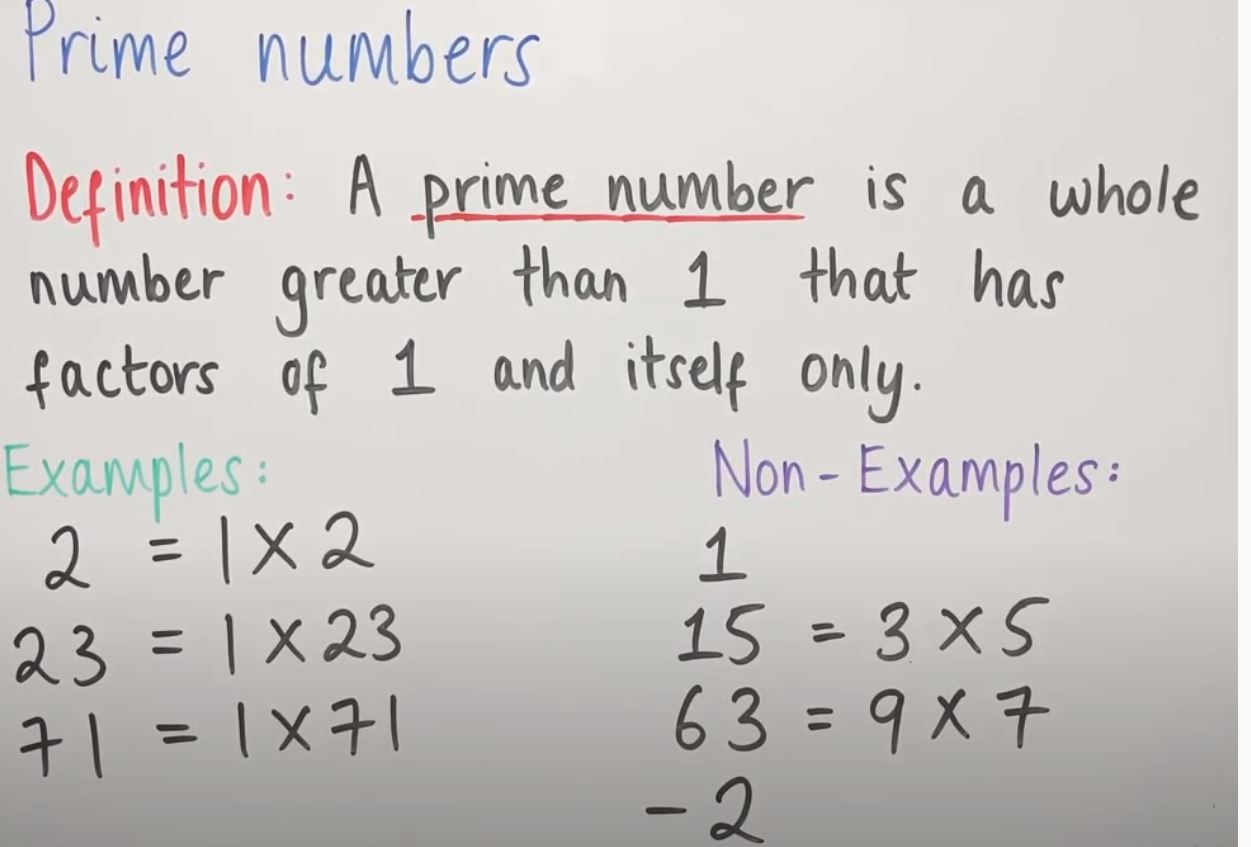 Prime numbers
Definition: A prime number is a whole
number greater than 1 that has
factors of 1 and itself only.
Examples:
2 = 1 × 2
23 = 1 × 23
71 = 1 × 71
Non-Examples:
1
15 = 3 × 5
63 = 9 × 7
-2